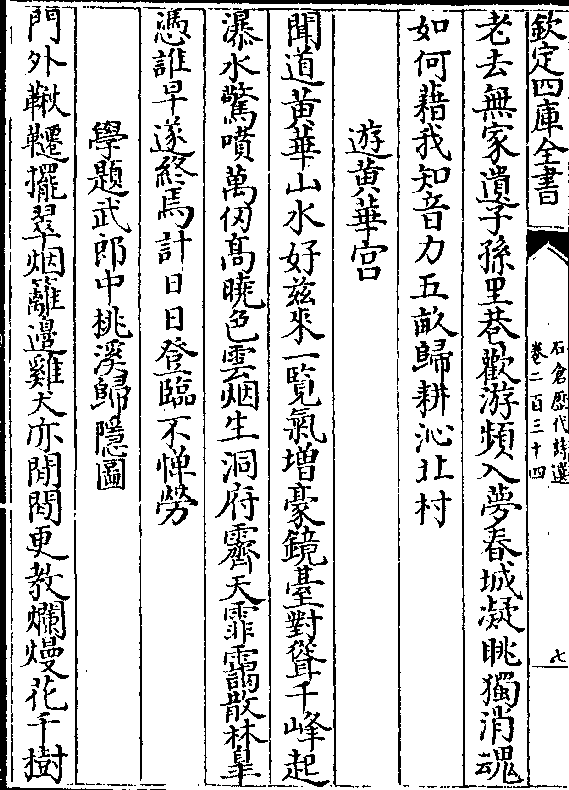 欽定四庫全書
石倉歷代詩選
卷二百三十四
七
老去無家遺子孫里巷歡游頻入夢春城凝眺獨消魂
如何藉我知音力五畝歸耕沁北村
遊黄華宫
聞道黄華山水好兹來一覧氣增豪鏡臺對聳千峰起
瀑水驚噴萬仞高曉色雲烟生洞府霽天霏靄散林臯
憑誰早遂終焉計日日登臨不憚勞
學題武郎中桃溪歸隱圖
門外鞦韆擺翠烟籬邊雞犬亦閒閒更教爛熳花千樹